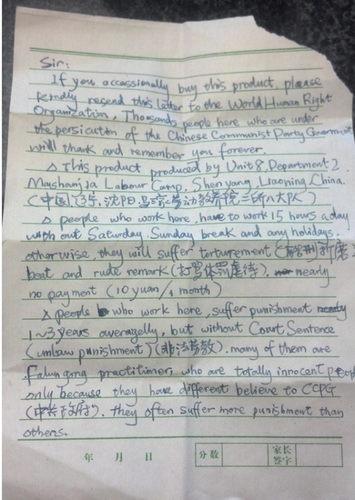 Sir:
If you occassionally buy this product, please
kindly resend this letter to the World Human Right
Organization. Thousands people here who are under
the persicution of the Chinese Communist Party Government
will thank and remember you forever.
△ This product produced by Unit 8, Department 2,
Mashanjia Labour Camp, Shen yang, Liaoning, China.
(中国, 辽宁, 沈阳, 马三家劳动教养院二所八大队)
△ people who work here, have to work 15 hours a day
with out Saturday, Sunday break and any holidays.
otherwise, they will suffer torturement (酷刑折磨)
beat and rude remark (打骂体罚虐待), nearly
no payment (10 yuan/1 month)
△ people who work here, suffer punishment nearly
1~3 years averagelly, but without Court Sentence
(unlaw punishment) (非法劳教). many of them are
Falungong practitioner, who are totally innocent people
only because they have different believe to CCPG
(中共政府). they often suffer more punishment than
others.
年 月 日 分数 家长签字